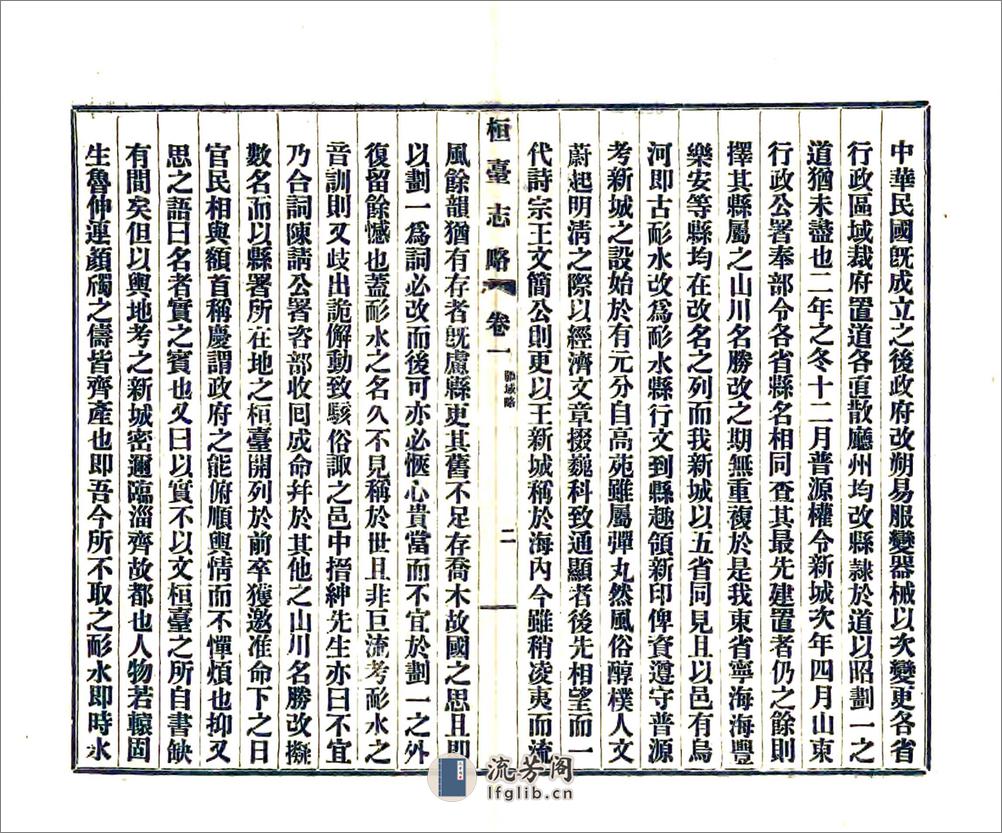 中華民國旣成立之後政府改朔易服變器械以次變更各省
行政區域裁府置道各直散廳州均改縣隸於道以昭劃一之
道猶未盡也二年之冬十二月普源權令新城次年四月山東
行政公署奉部令各省縣名相同査其最先建置者仍之餘則
擇其縣屬之山川名勝改之期無重複於是我東省寧海海豐
樂安等縣均在改名之列而我新城以五省同見且以邑有烏
河卽古耏水改為耏水縣行文到縣趣領新印俾資遵守普源
考新城之設始於有元分自高苑雖屬彈丸然風俗醇樸人文
蔚起明淸之際以經濟文章掇巍科致通顯者後先相望而一
代詩宗王文簡公則更以王新城稱於海內今雖稍凌夷而流
桓臺志略
卷一
疆域略
二
風餘韻猶有存者旣慮縣更其舊不足存喬木故國之思且卽
以劃一為詞必改而後可亦必愜心貴當而不宜於劃一之外
復留餘憾也蓋耏水之名久不見稱於世且非巨流考耏水之
音訓則又歧出詭僻動致駭俗諏之邑中搢紳先生亦曰不宜
乃合詞陳請公署咨部收回成命幷於其他之山川名勝改擬
數名而以縣署所在地之桓臺開列於前卒獲邀准命下之日
官民相與額首稱慶謂政府之能俯順輿情而不憚煩也抑又
思之語曰名者實之賓也又曰以實不以文桓臺之所自書缺
有間矣但以輿地考之新城密邇臨淄齊故都也人物若轅固
生魯仲連顏斶之儔皆齊產也卽吾今所不取之耏水卽時水
流芳阁
lfglib.cn